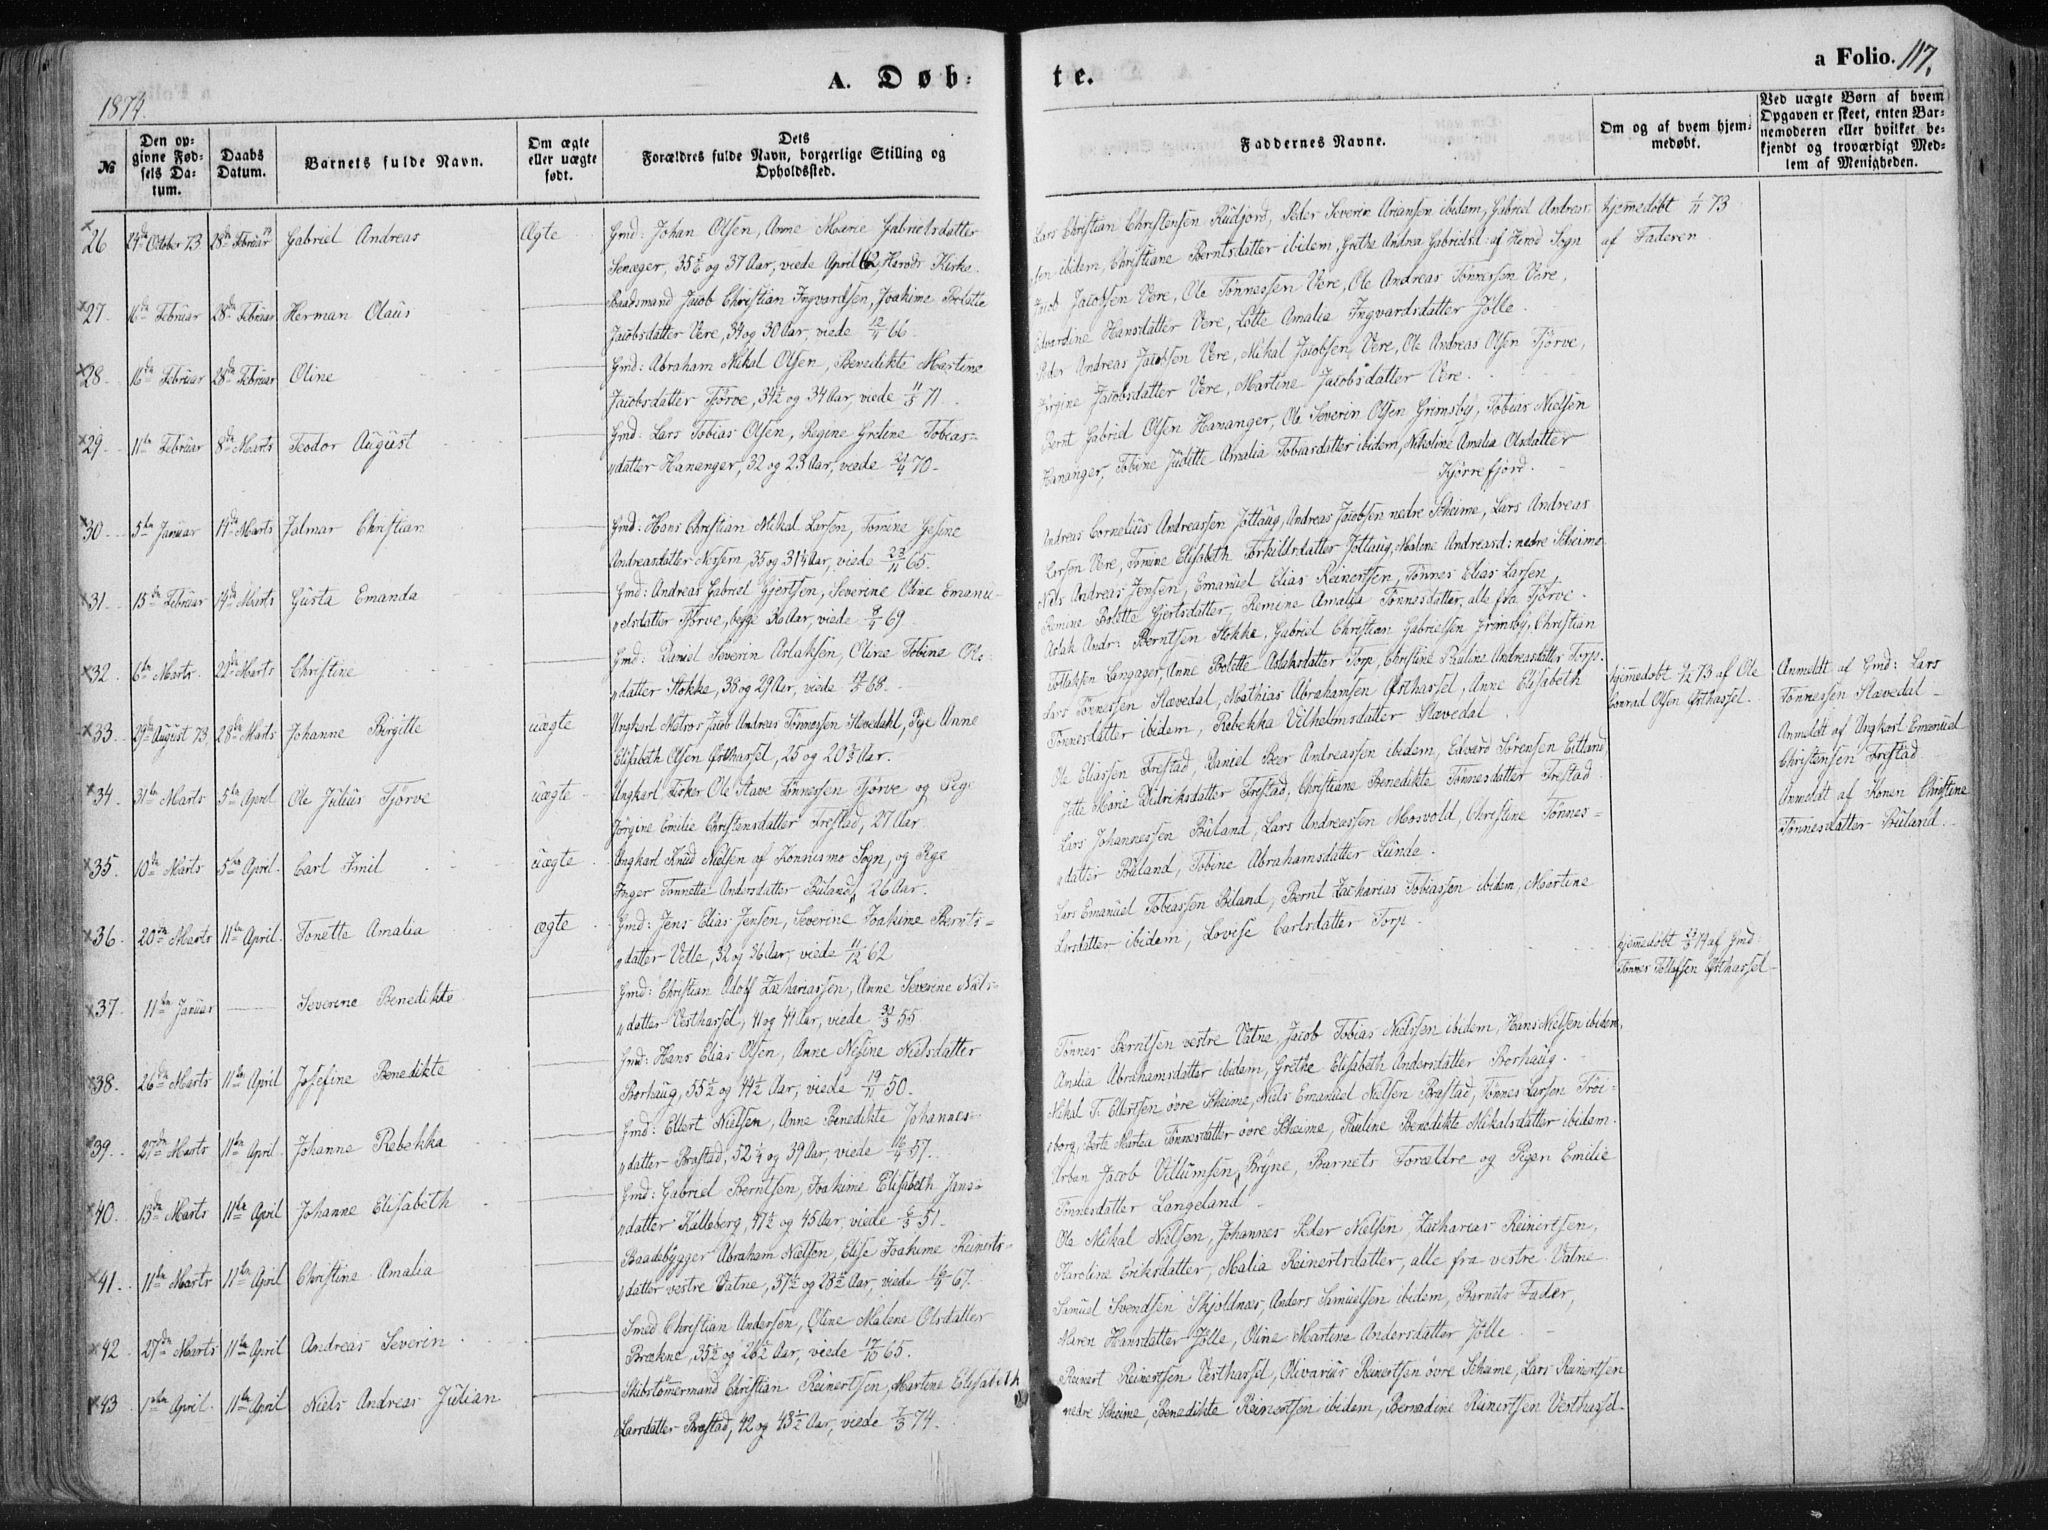 A. Døb-
te.
a Folio. 117.
1874.
№
Den op-
givne Fød-
sels Da-
tum.
Daabs
Datum.
Barnets fulde Navn.
Om ægte
eller uægte
født.
Dets
Forældres fulde Navn, borgerlige Stilling og
Opholdssted.
Faddernes Navne.
Om og af hvem hjem-
medøbt.
Ved uægte Børn af hvem
Opgaven er skeet, enten Bar-
nemoderen eller hvilket be-
kjendt og troværdigt Med-
lem af Menigheden.
26 24de October 73 28de Februar Gabriel Andreas Ægte Gmd: Johan Olsen, Anne Marie Gabrielsdatter
og 37 Aar, viede April 62, Kirke.
27. 16de Februar 28de Februar Herman Olaus Baadsmand Jacob Christian Ingvardsen, Joakime Bolette
Jacobsdatter Vere, 34 og 30 Aar, viede 12/4 66.
28. 16de Februar 28de Februar Oline Gmd: Abraham Mikal Olsen, Benedikte Martine
Jacobsdatter Tjørve, 34½ og 34 Aar, viede 11/5 71.
29. 11te Februar 8de Marts Teodor August Gmd: Lars Tobias Olsen, Regine Gretine Tobias-
datter Hananger, 32 og 23 Aar, viede 21/4 70.
30. 5te Januar 14de Marts Jalmar Christian Gmd: Hans Christian Mikal Larsen, Tomine Gesine
Andreasdatter Nesem, 35 og 31¼ Aar, viede 23/11 65.
31. 15de Februar 14de Marts Gusta Emanda Gmd: Andreas Gabriel Gjertsen, Severine Oline Emanu-
elsdatter Tjørve, begge 30 Aar, viede 69.
32. 6te Marts 22de Marts Christine Gmd: Daniel Severin Aslaksen, Oline Tobine Ols-
datter Stokke, 38 og 29 Aar, viede 68.
33. 29de August 73. 28de Marts Johanne Birgitte uægte Ungkarl Matros Jacob Andreas Tønnessen Stavedahl, Pige Anne
Elisabeth Olsen Østhassel, 25 og 20 Aar.
34. 31te Marts 5te April Ole Julius Tjørve uægte Ungkarl Fisker Ole Stave Tønnessen Tjørve og Pige
Jørgine Emilie Christensdatter Frestad, 27 Aar.
35. 10de Marts 5te April. Carl Emil uægte Ungkarl Knud Nielsen af Konnesmo Sogn, og Pige
Inger Tonnette Andersdatter Büland, 26 Aar.
36. 20de Marts 11te April. Tonette Amalia ægte Gmd: Jens Elias Jensen, Severine Joakime Bernts-
datter Velle, 32 og 36 Aar, viede 11/12 62
37. 11te Januar Severine Benedikte Gmd: Christian Adolf Zachariassen, Anne Severine Niels-
datter Vesthassel, 41 og 44 Aar, viede 55
38. 26de Marts 11te April Josefine Benedikte Gmd: Hans Elias Olsen, Anne Nesine Nielsdatter
Borhaug, 55½ og 44½ Aar, viede 19/11 50.
39. 27de Marts 11te April Johanne Rebekka Gmd: Ellert Nielsen, Anne Benedikte Johannes-
datter Brastad, 52¼ og 39 Aar, viede 16/4 57.
40. 13de Marts 11te April Johanne Elisabeth Gmd: Gabriel Berntsen, Joakime Elisabeth Jans-
datter Kalleberg, 47½ og 45 Aar, viede 51.
41. 11te Marts 11te April Christine Amalia Baadebygger Abraham Nielsen, Elise Joakime Reinerts-
datter vestre Vatne, 37½ og 28½ Aar, viede 67.
42 27de Marts 11te April Andreas Severin Smed Christian Andersen, Oline Malene Olsdatter
Brekne, 35½ og 26½ Aar, viede 17/10 65.
43. 1ste April. 11te April Niels Andreas Julian Skibstømmermand Christian Reinertsen, Martine Elisabeth
Larsdatter Brastad, 42 og 43½ Aar, viede 74.
Lars Christian Christensen Rudjord, Peder Severin Ariansen ibidem, Gabriel Andreas-
sen ibidem, Christiane Berntsdatter ibidem, Grethe Andrea Gabrielsd: af Herod Sogn
hjemmedøbt 1/11 73
af Faderen.
Jacob Jacobsen Vere, Ole Tønnessen Vere, Ole Andreas Tønnessen Vere,
Edvardine Hansdatter Vere, Lotte Amalia Ingvardsdatter Jølle.
Peder Andreas Jacobsen Vere, Mikal Jacobsen Vere, Ole Andreas Olsen Tjørve,
Jørgine Jacobsdatter Vere, Martine Jacobsdatter Vere.
Bernt Gabriel Olsen Hananger, Ole Severin Olsen Grimsby, Tobias Nielsen
Hananger, Tobine Juditte Amalia Tobiasdatter ibidem, Nikoline Amalia Olsdatter
Kjørrefjord.
Andreas Cornelius Andreassen Jøllaug, Andreas Jacobsen nedre Skeime, Lars Andreas
Larsen Vere, Tomine Elisabeth Torkildsdatter Jøllaug, Malene Andreasd: nedre Skeime.
Niels Andreas Jensen, Emanuel Elias Reinertsen, Tønnes Elias Larsen,
Remine Bolette Gjertsdatter, Remine Amalia Tønnesdatter, alle fra Tjørve.
Aslak Andr: Berntsen Stokke, Gabriel Christian Gabrielsen Grimsby, Christian
Tollaksen Langager, Anne Bolette Aslaksdatter Torp, Christine Pauline Andreasdatter Torp.
Lars Tønnesen Stavedal, Mathias Abrahamsen Østhassel, Anne Elisabeth
Tønnesdatter ibidem, Rebekka Vilhelmsdatter Stavedal.
hjemmedøbt 73 af Ole
Conrad Olsen Østhassel.
Anmeldt af Gmd: Lars
Tønnessen Stavedal
Ole Eliassen Frestad, Daniel Beer Andreassen ibidem, Edvard Sørensen Eitland,
Jitte Marie Didriksdatter Frestad, Christiane Benedikte Tønnesdatter Frestad.
Anmeldt af Ungkarl Emanuel
Christensen Frestad.
Lars Johannessen Büland, Lars Andreassen Mosvold, Christine Tønnes-
datter Büland, Tobine Abrahamsdatter Lunde.
Anmeldt af Konen Christine
Tønnesdatter Büland.
Lars Emanuel Tobiassen Biland, Bernt Zacharias Tobiassen ibidem, Martine
Larsdatter ibidem, Lovise Carlsdatter Torp.
hjemmedøbt 74 af Gmd:
Tønnes Tollefsen Østhassel
Tønnes Berntsen vestre Vatne, Jacob Tobias Nielsen ibidem, Hans Nielsen ibidem,
Amalia Abrahamsdatter ibidem, Grethe Elisabeth Andersdatter Borhaug.
Mikal T. Ellertsen øvre Skeime, Niels Emanuel Nielsen Brastad, Tønnes Larsen Trøi-
borg, Berte Martea Tønnesdatter øvre Skeime, Pauline Benedikte Mikalsdatter ibidem.
Urban Jacob Villumsen Bryne, Barnets Forældre og Pigen Emilie
Tønnesdatter Langeland.
Ole Mikal Nielsen, Johannes Peder Nielsen, Zacharias Reinertsen,
Karoline Eriksdatter, Malia Reinertsdatter, alle fra vestre Vatne.
Samuel Svendsen Skjoldnæs, Anders Samuelsen ibidem, Barnets Fader,
Maren Hansdatter Jølle, Oline Martine Andersdatter Jølle.
Reinert Reinertsen Vesthassel, Olivarius Reinertsen øvre Skeime, Lars Reinertsen
nedre Skeime, Benedikte Reinertsen ibidem, Bernadine Reinertsen Vesthassel.